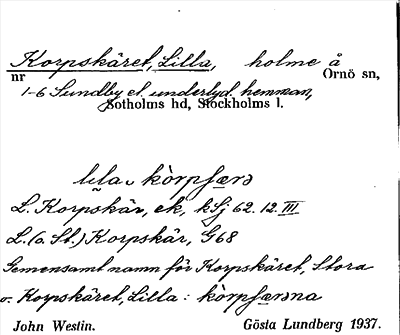 Korpskäret, Lilla, holme å
nr Ornö sn,
1-6 Sundby el. underlyd. hemman,
Sotholms hd, Stockholms l.
lıla kòrpʃærə
L. Korpskär, ek, kSj 62. 12. III
L. (o. St.) Korpskär, G68
Gemensamt namn för Korpskäret, Stora
o. Korpskäret, Lilla: kòrpʃærəna
John Westin. Gösta Lundberg 1937.